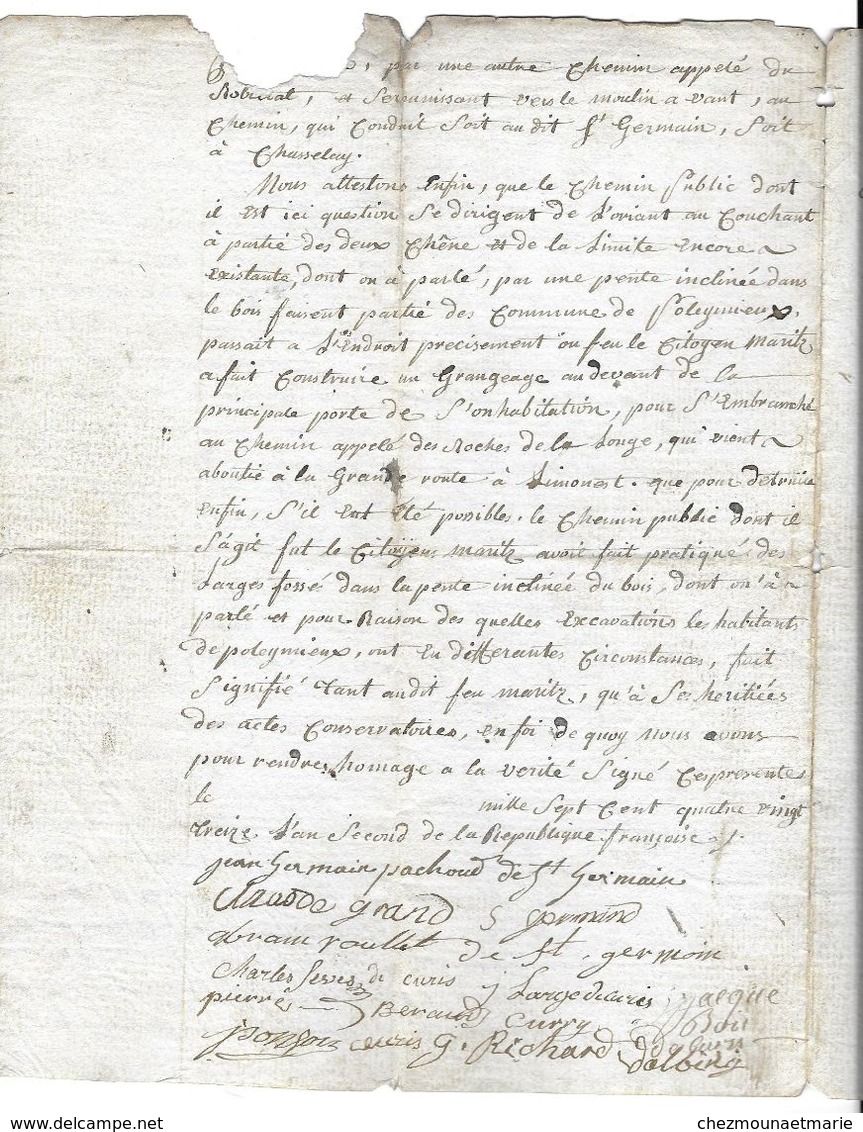 , par une autre Chemin appelé du
Robiat, et Serunissant vers le moulin a vant, au
Chemin, qui Conduit Soit au dit St Germain, Soit
à Chasselay.
Nous attestons Enfin, que le Chemin public dont
il Est ici question Se dirigent de L'oriant au Couchant
à partié des deux Chêne et de la Limite Encore
Existante, dont on à parlé, par une pente inclinée dans
le bois faisent partié des Commune de Poleymieux,
passait a L'Endroit precisement ou feu le Citoyen Maritz
a fait Construire un Grangeage au devant de la
principale porte de S'on habitation, pour S'Embranché
au Chemin appelé des Roches de la Longe, qui vient
aboutié à la Grande route à Limonest. que pour detruire
Enfin, S'il Eut Eté possibles, le Chemin public dont il
S'agit fut le Citoyens Maritz avoit fait pratiqué des
Larges fossé dans la pente inclinée du bois, dont on'à
parlé et pour Raison des quelles Excavations les habitants
de poleymieux, ont Eu differantes Circonstances, fait
Signifié Tant audit feu maritz, qu'à Ses heritiées
des actes Conservatoires, en foi de quoy Nous avons
pour rendres homage a la verité Signé Ces presentes
le mille Sept Cent quatre vingt
treize L'an Second de la Republique françoise
jean Germain pachoud de St Germain
Claude grand S germain
abram roullet de St. germain
Charles de curis Large de curis jacque
pierre Beraud Curry Boi
Ponson curis g. Richard